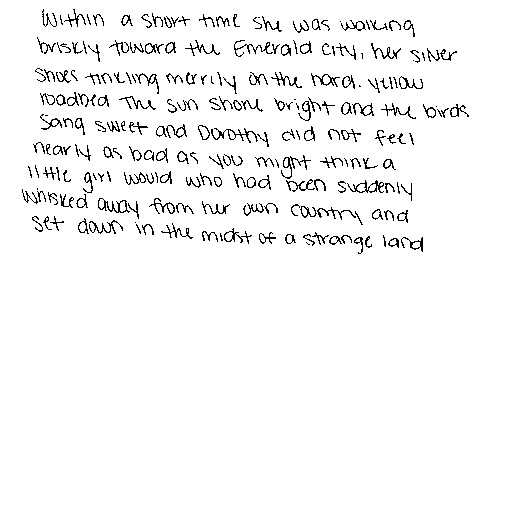 Within a short time she was walking
briskly toward the Emerald City, her silver
shoes tinkling merrily on the hard. yellow
roadbed The sun shone bright and the birds
sang sweet and Dorothy did not feel
nearly as bad as you might think a
little girl would who had been suddenly
whisked away from her own country and
set down in the midst of a strange land